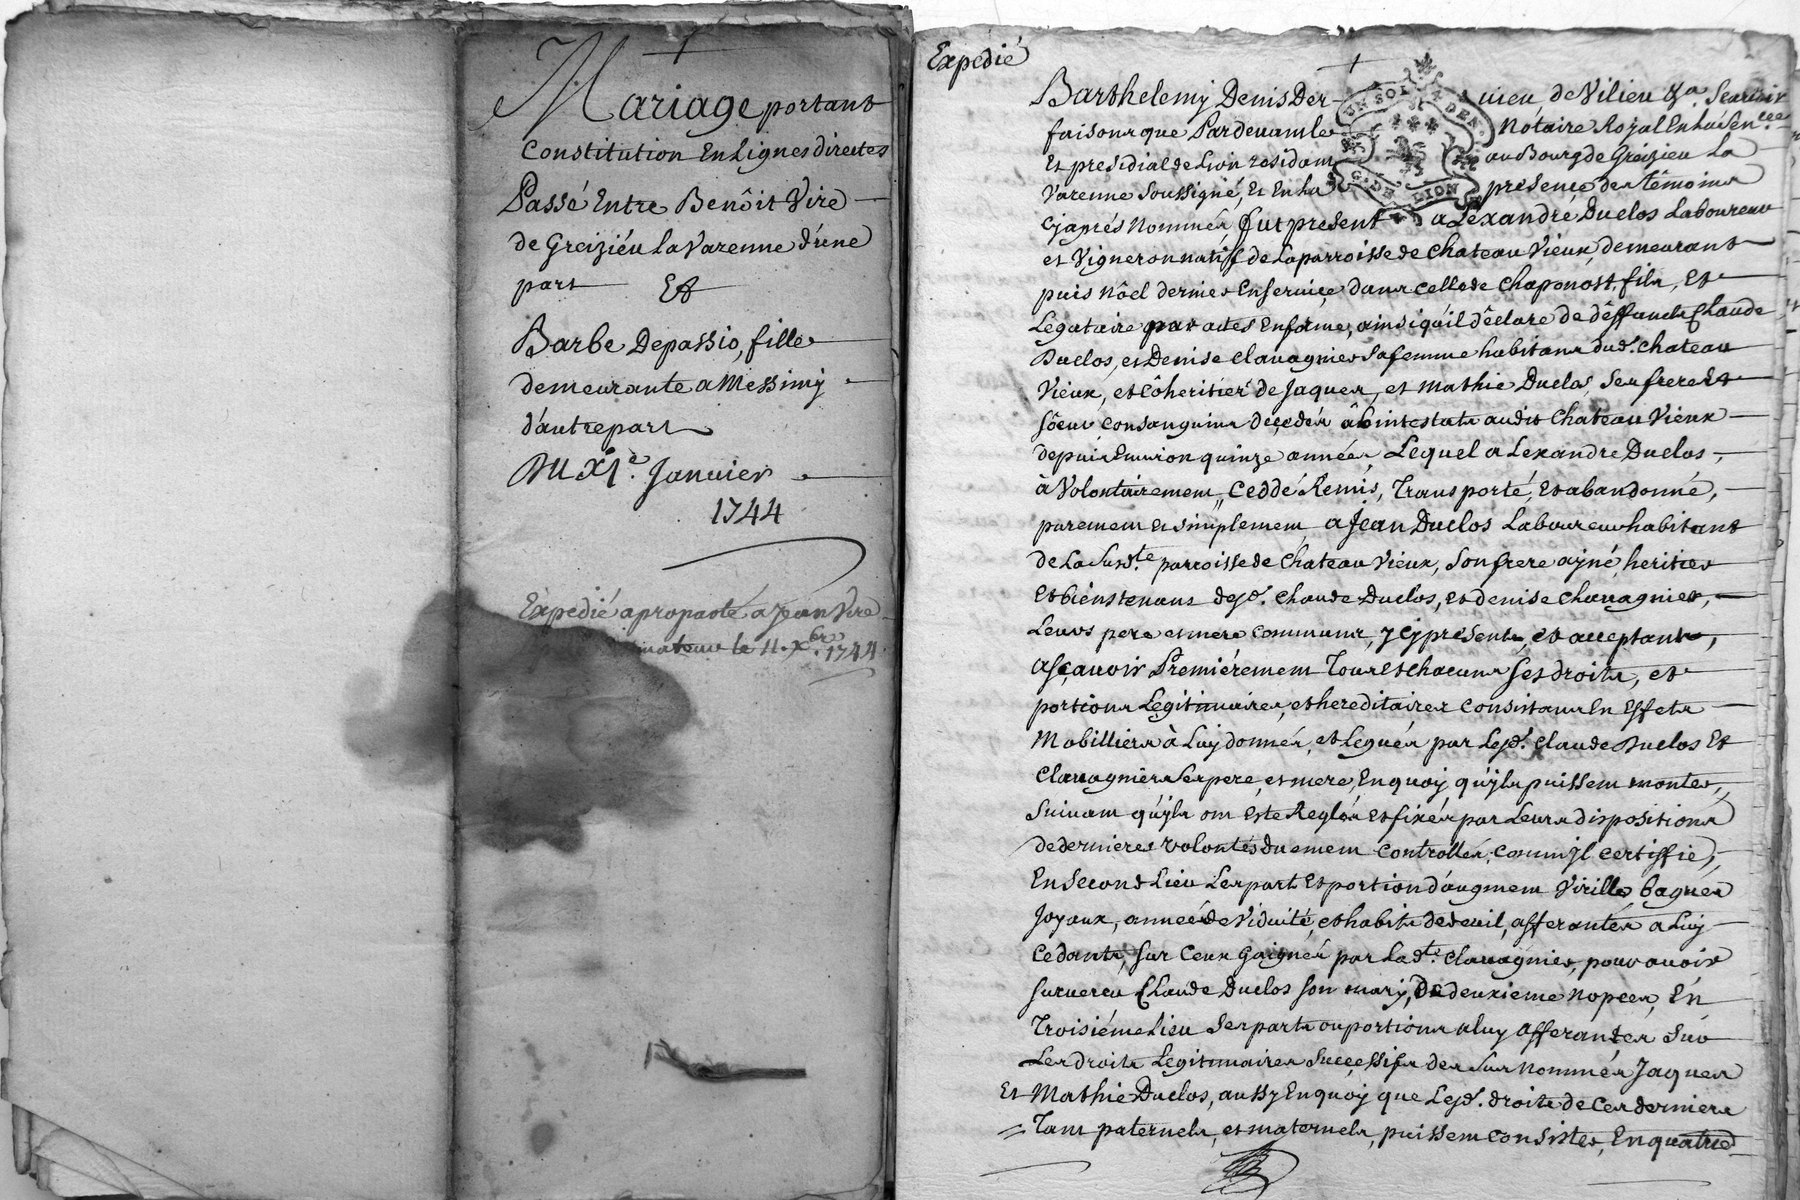 Mariage portant
Constitution En Lignes directes
Passé Entre Benôit Vire
de Greizieu La Varenne d'une
part Et
Barbe Depassio, fille
demeurante a Messimy
d'autre part
Du XIe. Janvier
1744
Expedié a propacté a Jean Vire
le 11. Xbre. 1744
Expedié
Barthelemy Denis Der-
rieu de Vilieu
faisons que Pardevant le
Notaire Royal En la Sencée
Et presidial de Lion residant
au Bourg de Greizieu La
Varenne soussigné, Et En la
presence des têmoins
UN SOL 4 DEN.
G. DE LION
Cy aprés Nommés fut present alexandré Duclos Laboureur
et Vigneron natif de La parroisse de Chateau Vieux, demeurant
puis Nôel dernier En service dans celle de Chaponost, fils, Et
Legataire par actes En forme, ainsi qu'il dêclare de dêffunts Claude
Duclos, et Denise Clavagnier Sa femme habitans dud. Chateau
Vieux, et Côheritier de Jaques, et Mathie Duclos, Ses frere Et
Sôeur Consanguins deçedés âb intestats audit Chateau Vieux
depuis Environ quinze années, Lequel alexandre Duclos,
à Volontairement, Ceddé Remis, Transporté, Et abandonné,
purement Et simplement, a Jean Duclos Laboureur habitant
de La Susdte. parroisse de Chateau Vieux, Son frere ayné, heritier
Et bienstenant desd. Claude Duclos, et denise Clavagnier,
Leurs pere et mere Communs, y cy present, et acceptant,
asçavoir Premiérement Tous Et chacuns Ses droits, et
portions Legitimaires, et hereditaires Consistans En Effets
Mobilliers à Luy donnés, et Legués par Lesd. Claude Duclos Et
Clavagnier Ses pere, et mere, En quoy qu'yls puissent monter,
Suivant qu'yls ont Esté Reglés Et fixés par Leurs dispositions
de derniéres Volontés duement Controllés, comm'Il certiffie,
En Second Lieu Les part Et portion d'augment Virille, bagues
Joyaux, année de Viduité, et habits de deuil, afferantes a Luy
Cedant, sur Ceux Gaignés par Ladte. Clavagnier, pour avoir
survecu Claude Duclos son mary, De deuxieme nopces, En
Troisiéme Lieu Ses parts ou portions a luy afferantes Sur
Les droits Legitimaires Sucçessifs des Sus nommés Jaques
Et Mathie Duclos, aussy En quoy que Lesd. droits de Ces derniers
Tant paternels, et maternels, puissent Consister, En quatre